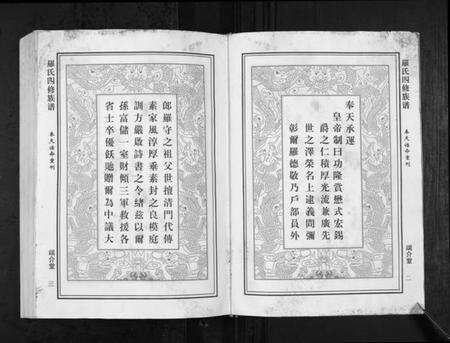 羅氏四修族谱
奉天誥命重刊
二
奉天承運
皇帝制曰功隆賞懋式宏錫
爵之仁積厚光流兼廣先
世之澤榮名上逮義問彌
彰爾羅德敬乃戶部員外
郎羅守之祖父世擅清門代傳
素家風淳厚垂素封之良模庭
訓方嚴啟詩書之令緒茲以爾
孫富儲一室財傾三軍救援各
省士卒優飫貤贈爾為中議大
羅氏四修族谱
奉天誥命重刊
三